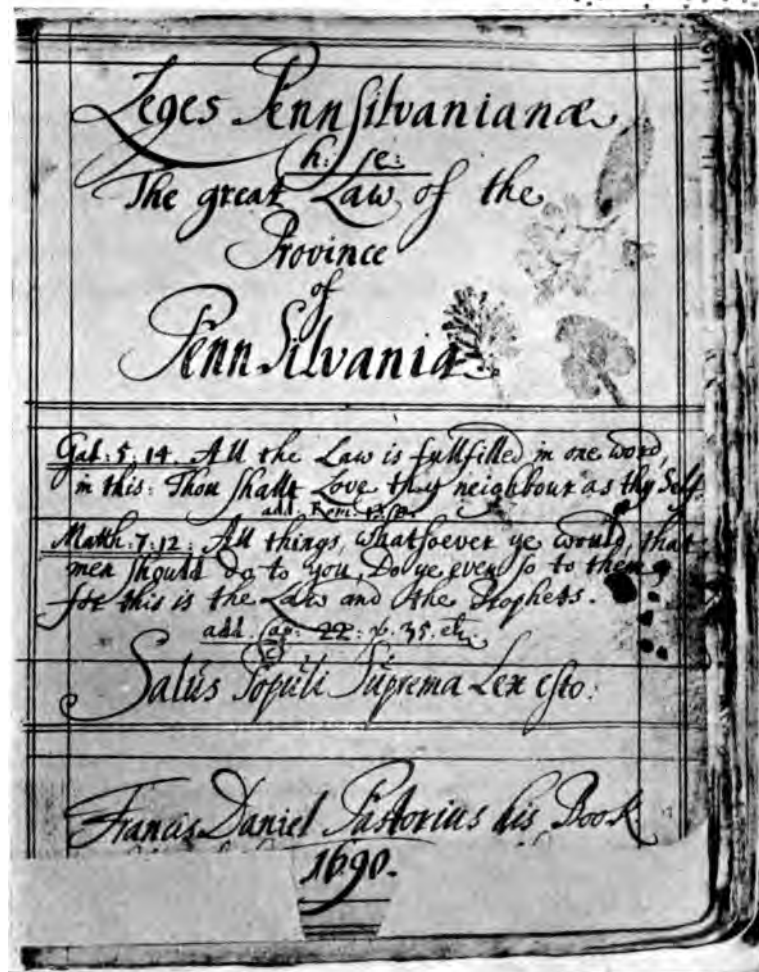 Leges PennSilvanianæ,
h: e:
The great Law of the
Province
of
PennSilvania.
Gal: 5: 14. All the Law is fullfilled in one word,
in this: Thou shalt Love thy neighbour as thy Self.
add. Rom: 13:
Matth: 7: 12: All things, whatsoever ye would, that
men should do to you, Do ye even so to them:
for this is the Law and the Prophets.
add. Cap: 22: v. 35. etc.
Salūs Popūli Sūprema Lex esto:
Francis Daniel Pastorius his Book
1690.